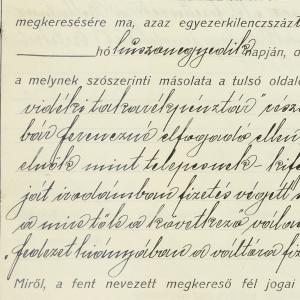 megkeresésére ma, azaz egyezerkilenczszáz
hó huszonegyedik napján, a
a melynek szószerinti másolata a tulsó oldal
vidéki takarékpénztár" rész
bár ferenczné elfogadó ellen
elnök mint telepesnek - kife
ját irodámban fizetés végett
a mire tőle a következő válas
"fedezet hiányában a váltára fiz
Miről, a fent nevezett megkereső fél jogai